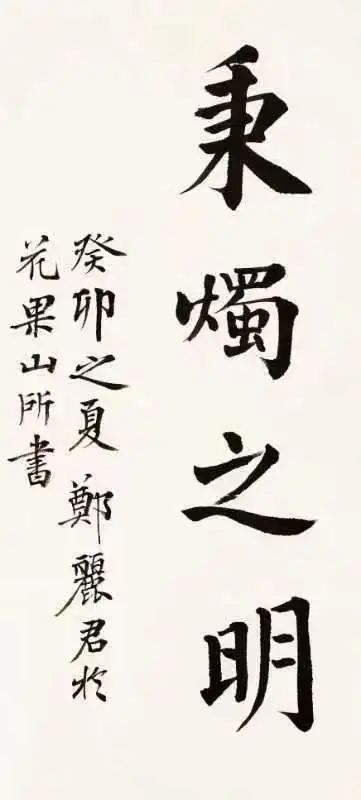 秉燭之明
癸卯之夏鄭麗君於
花果山所書